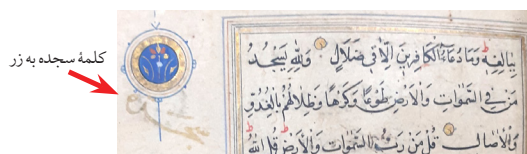 کلمهٔ سجده به زر
بِبَالِغِهِ وَمَا دُعَاءُ الْكَافِرِينَ اِلَّا فِي ضَلَالٍ وَلِلّٰهِ يَسْجُدُ
مَنْ فِي السَّمٰوَاتِ وَالْاَرْضِ طَوْعًا وَكَرْهًا وَظِلَالُهُمْ بِالْغُدُوِّ
وَالْاٰصَالِ قُلْ مَنْ رَبُّ السَّمٰوَاتِ وَالْاَرْضِ قُلِ اللّٰهُ